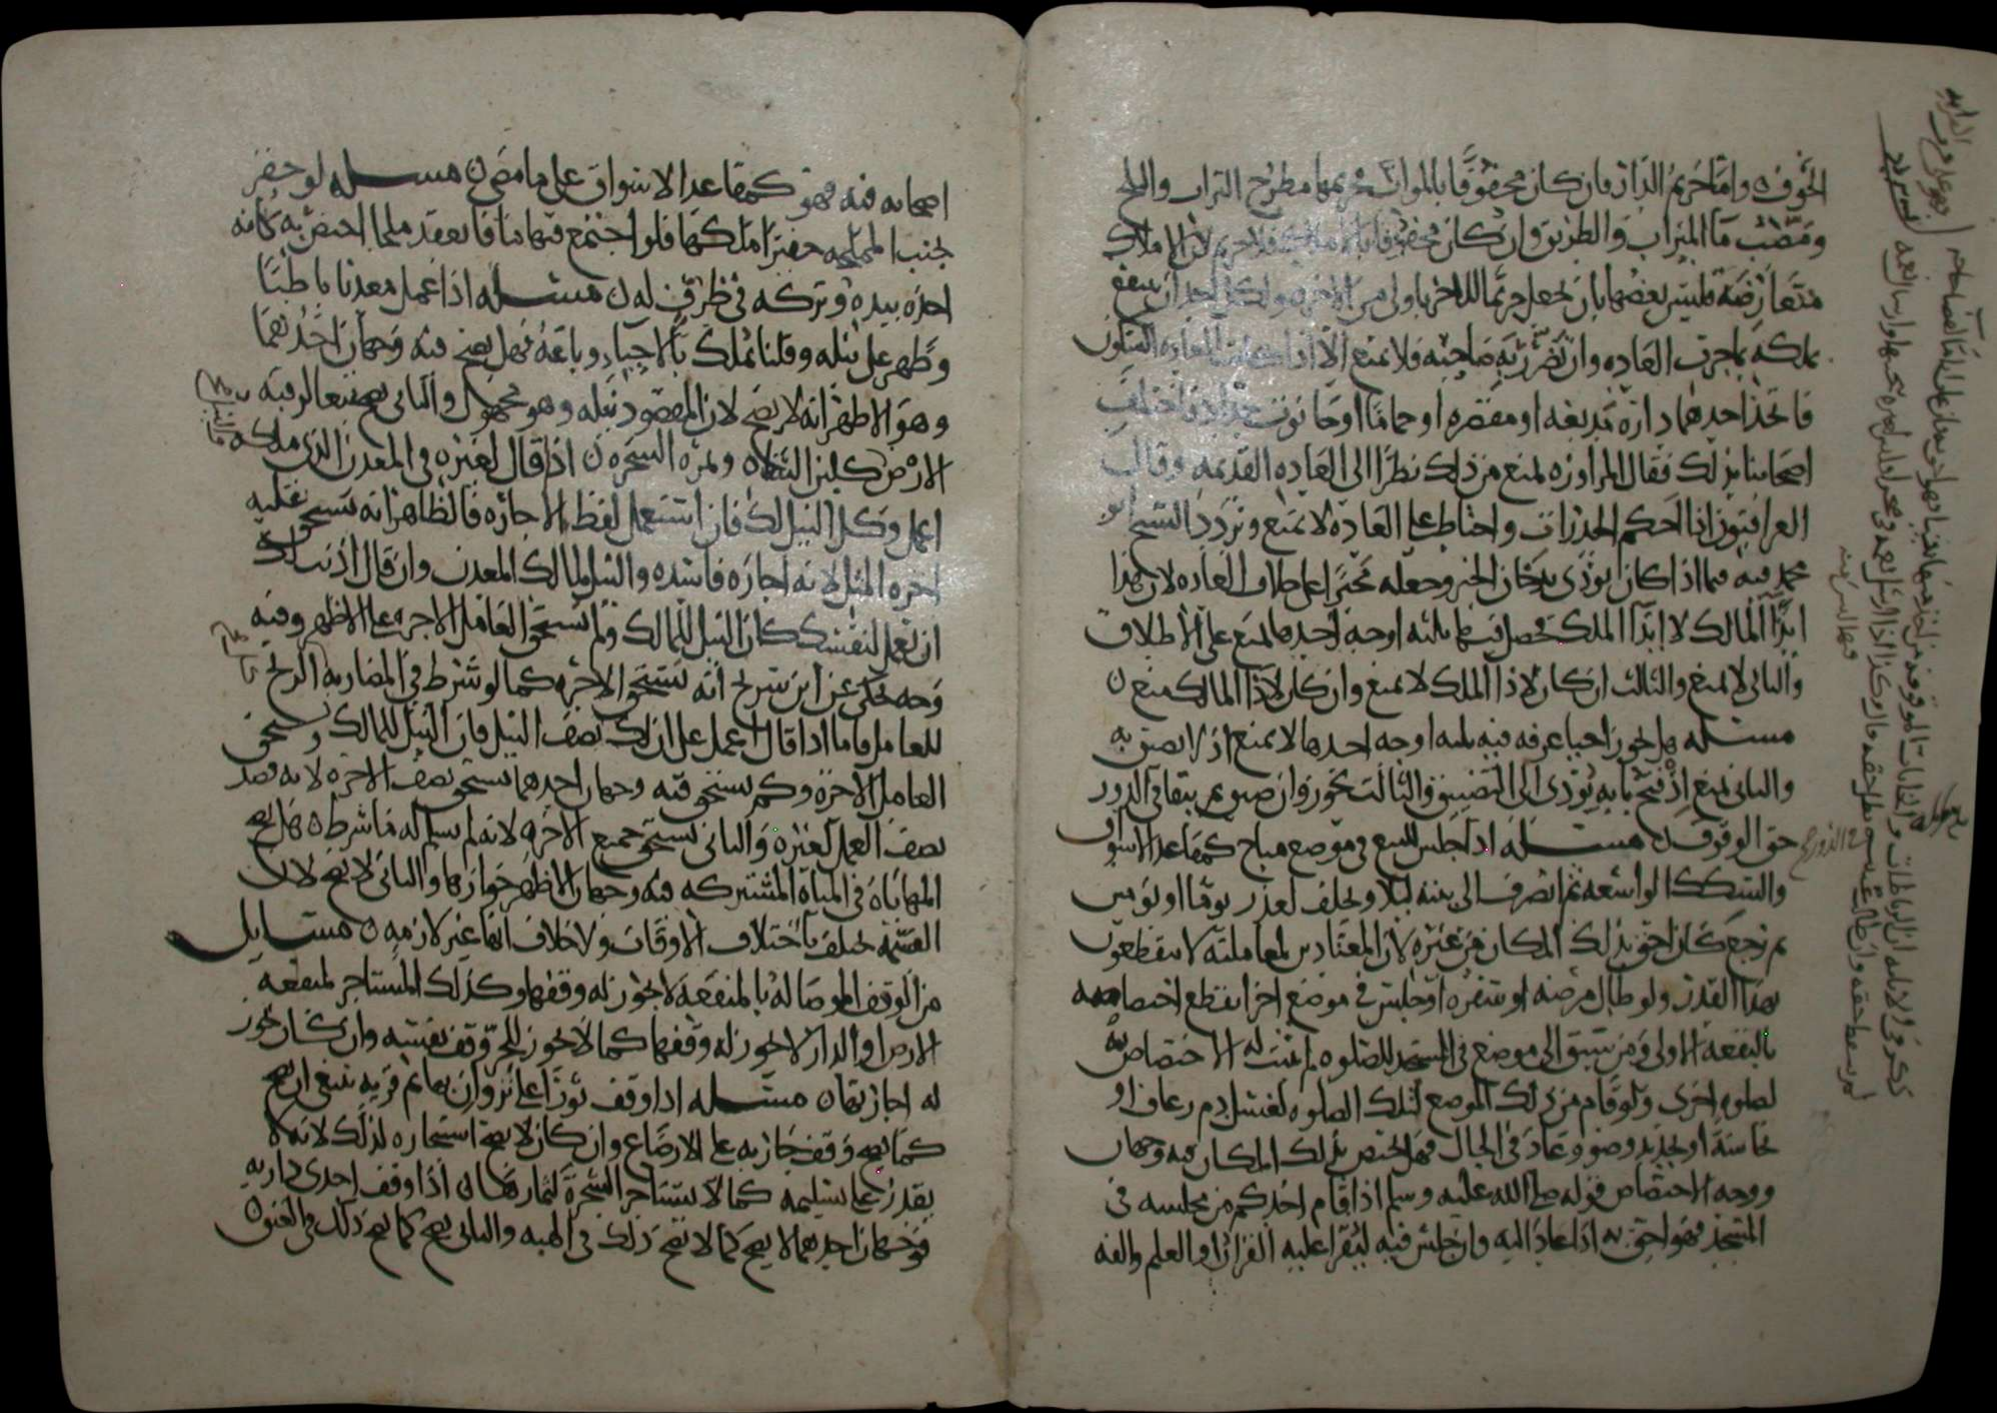 الخوف ٥ واما حريم الدار فان كان محفوفا بالموات فحريمها مطرح التراب والثلج
ومصب ما الميزاب والطريق وان كان محفوفا بالاملاك فلا حريم لان الاملاك
متعارضه فليس بعضها بان يجعل حريما للاخر باولى من الاخر ولكل احد ان ينتفع
بملكه بما جرت العاده وان تضرر به صاحبه فلا يمنع الا اذا
فاتخذ احدهما داره مدبغه او مقصره او حماما او حانوت حداد فاختلف
اصحابنا بذلك فقال المراوزه يمنع من ذلك نظرا الى العاده القديمه وقال
العراقيون اذا احكم الجدرات واحتاط على العاده لا يمنع وتردد الشيخ ابو
محمد فيه فيما اذا كان يوذي بدخان الخبز وجعله مخبزا على خلاف العاده لان هذا
ايذا المالك لا ايذا الملك فحصل فيها ثلثه اوجه احدها يمنع على الاطلاق
والثاني لا يمنع والثالث ان كان لاذا الملك لا يمنع وان كان لاذا المالك منع ٥
مسله هل يجوز احيا عرفه فيه ثلثه اوجه احدها لا يمنع اذ لا تضيق به
والثاني يمنع اذ فتح بابه يودي الى التضييق والثالث يجوز وان ضيق ثم يبقا في الدور
حق الوقوف ٥ مسله اذا جلس للبيع في موضع مباح كمقاعد الاسواق
والسكك الواسعه ثم انصرف الى بيته ليلا وتخلف لعذر يوما او يومين
ثم رجع كان احق بذلك المكان من غيره لان المعتادين لمعاملته لا ينقطعون
بهذا القدر ولو طال مرضه او سفره او جلس في موضع اخر انقطع اختصاصه
بالبقعه الاولى ومن سبق الى موضع في المسجد للصلوه لم يثبت له الاختصاص به
لصلوه اخرى ولو قام من ذلك الموضع لتلك الصلوه لغسل دم رعاف او
نجاسه او تجديد وضو وعاد في الحال فهل يختص بذلك المكان فيه وجهان
ووجه الاختصاص قوله صلى الله عليه وسلم اذا قام احدكم من مجلسه في
المسجد فهو احق به اذا عاد اليه وان جلس فيه ليقرا عليه القران او العلم والفه
اصحابه فيه فهو كمقاعد الاسواق على ما مضى ٥ مسله لو حفر
بجنب المملحه حفيرا ملكها فلو اجتمع فيها ما فانعقد ملحا اختص به كانه
اخذه بيده وتركه في ظرف له ٥ مسله اذا عمل معدنا باطنا
وظهر على نيله وقلنا يملك بالاحياء وباعه فهل يصح فيه وجهان احدهما
وهو الاظهر انه لا يصح لان المقصود نيله وهو مجهول والثاني يصح تبعا لرقبه
الارض كلبن الشاه وثمره الشجره ٥ اذا قال لغيره في المعدن الذي ملكه
اعمل وكل النيل لك فان استعمل لفظ الاجاره فالظاهر انه يستحق عليه
اجره المثل لانه اجاره فاسده والنيل لمالك المعدن وان قال اذنت لك
ان تعمل لنفسك كان النيل للمالك ولم يستحق العامل الاجره على الاظهر وفيه
وجه يحكى عن ابن سريج انه يستحق الاجره كما لو شرط في المضاربه الربح
للعامل فاما اذا قال اعمل على ان لك نصف النيل فان النيل للمالك ويستحق
العامل الاجره وكم يستحق فيه وجهان احدهما يستحق نصف الاجره لانه قصد
نصف العمل لغيره والثاني يستحق جميع الاجره لانه لم يسلم له ما شرط ٥ هل تصح
المهاياه في المياه المشتركه فيه وجهان الاظهر جوازها والثاني لا تصح لان
القيمه تختلف باختلاف الاوقات ولا خلاف انها غير لازمه ٥ مسايل
من الوقف الموصا له بالمنفعه لا يجوز له وقفها وكذلك المستاجر لمنفعه
الارض او الدار لا يجوز له وقفها كما لا يجوز للحر وقف نفسه وان كان يجوز
له اجارتها ٥ مسله اذا وقف ثورا على نزوان بهايم قريه ينبغي ان يصح
كما يصح وقف جاريه على الارضاع وان كان لا يصح استيجاره لذلك لانه لا
يقدر على تسليمه كما لا يستاجر الشجره لثمارها ٥ اذا وقف احدى داريه
فوجهان احدهما لا يصح كما لا يصح ذلك في الهبه والثاني يصح كما يصح ذلك في العتق ٥